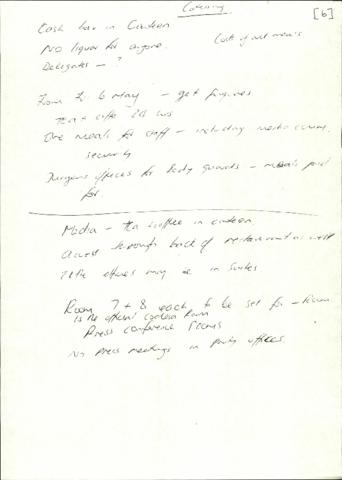 Catering
[6]
Cash bar in Canteen
No liquor for anyone.
Delegates – ?
6 May – get figures
Tea + coffee
meals for staff – including media comm,
security
offices for body guards – meals paid
for.
Media – Tea & coffee in canteen
Access through back of restaurant as well
offices may be in Suites
Room 7 + 8 each to be set for
is the official
Press conference rooms
No Press meetings in Party offices